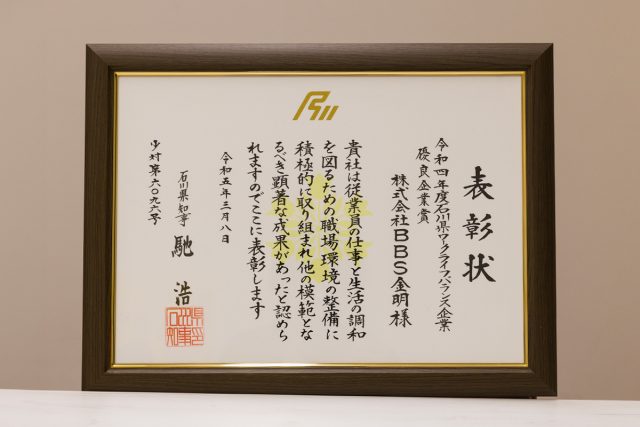 表彰状
令和四年度石川県ワークライフバランス企業
優良企業賞
株式会社BBS金明様
貴社は従業員の仕事と生活の調和
を図るための職場環境の整備に
積極的に取り組まれ他の模範とな
るべき顕著な成果があったと認めら
れますのでここに表彰します
令和五年三月八日
石川県知事 馳 浩
少対第六〇九六号